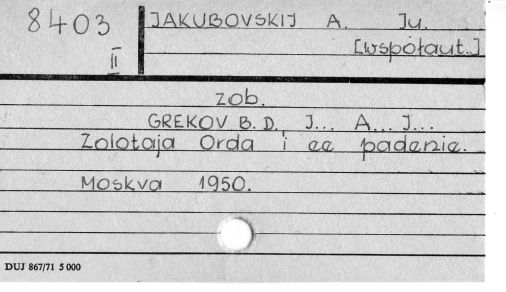 8403
II
JAKUBOVSKIJ A. Ju.
[współaut.]
zob.
GREKOV B.D., J... A... J...
Zolotaja Orda i ee padenie.
Moskva 1950.
DUJ 867/71 5 000